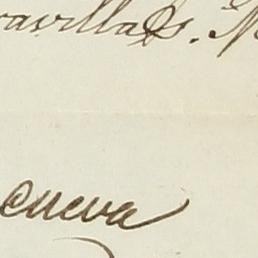 ravillas. N
cueva